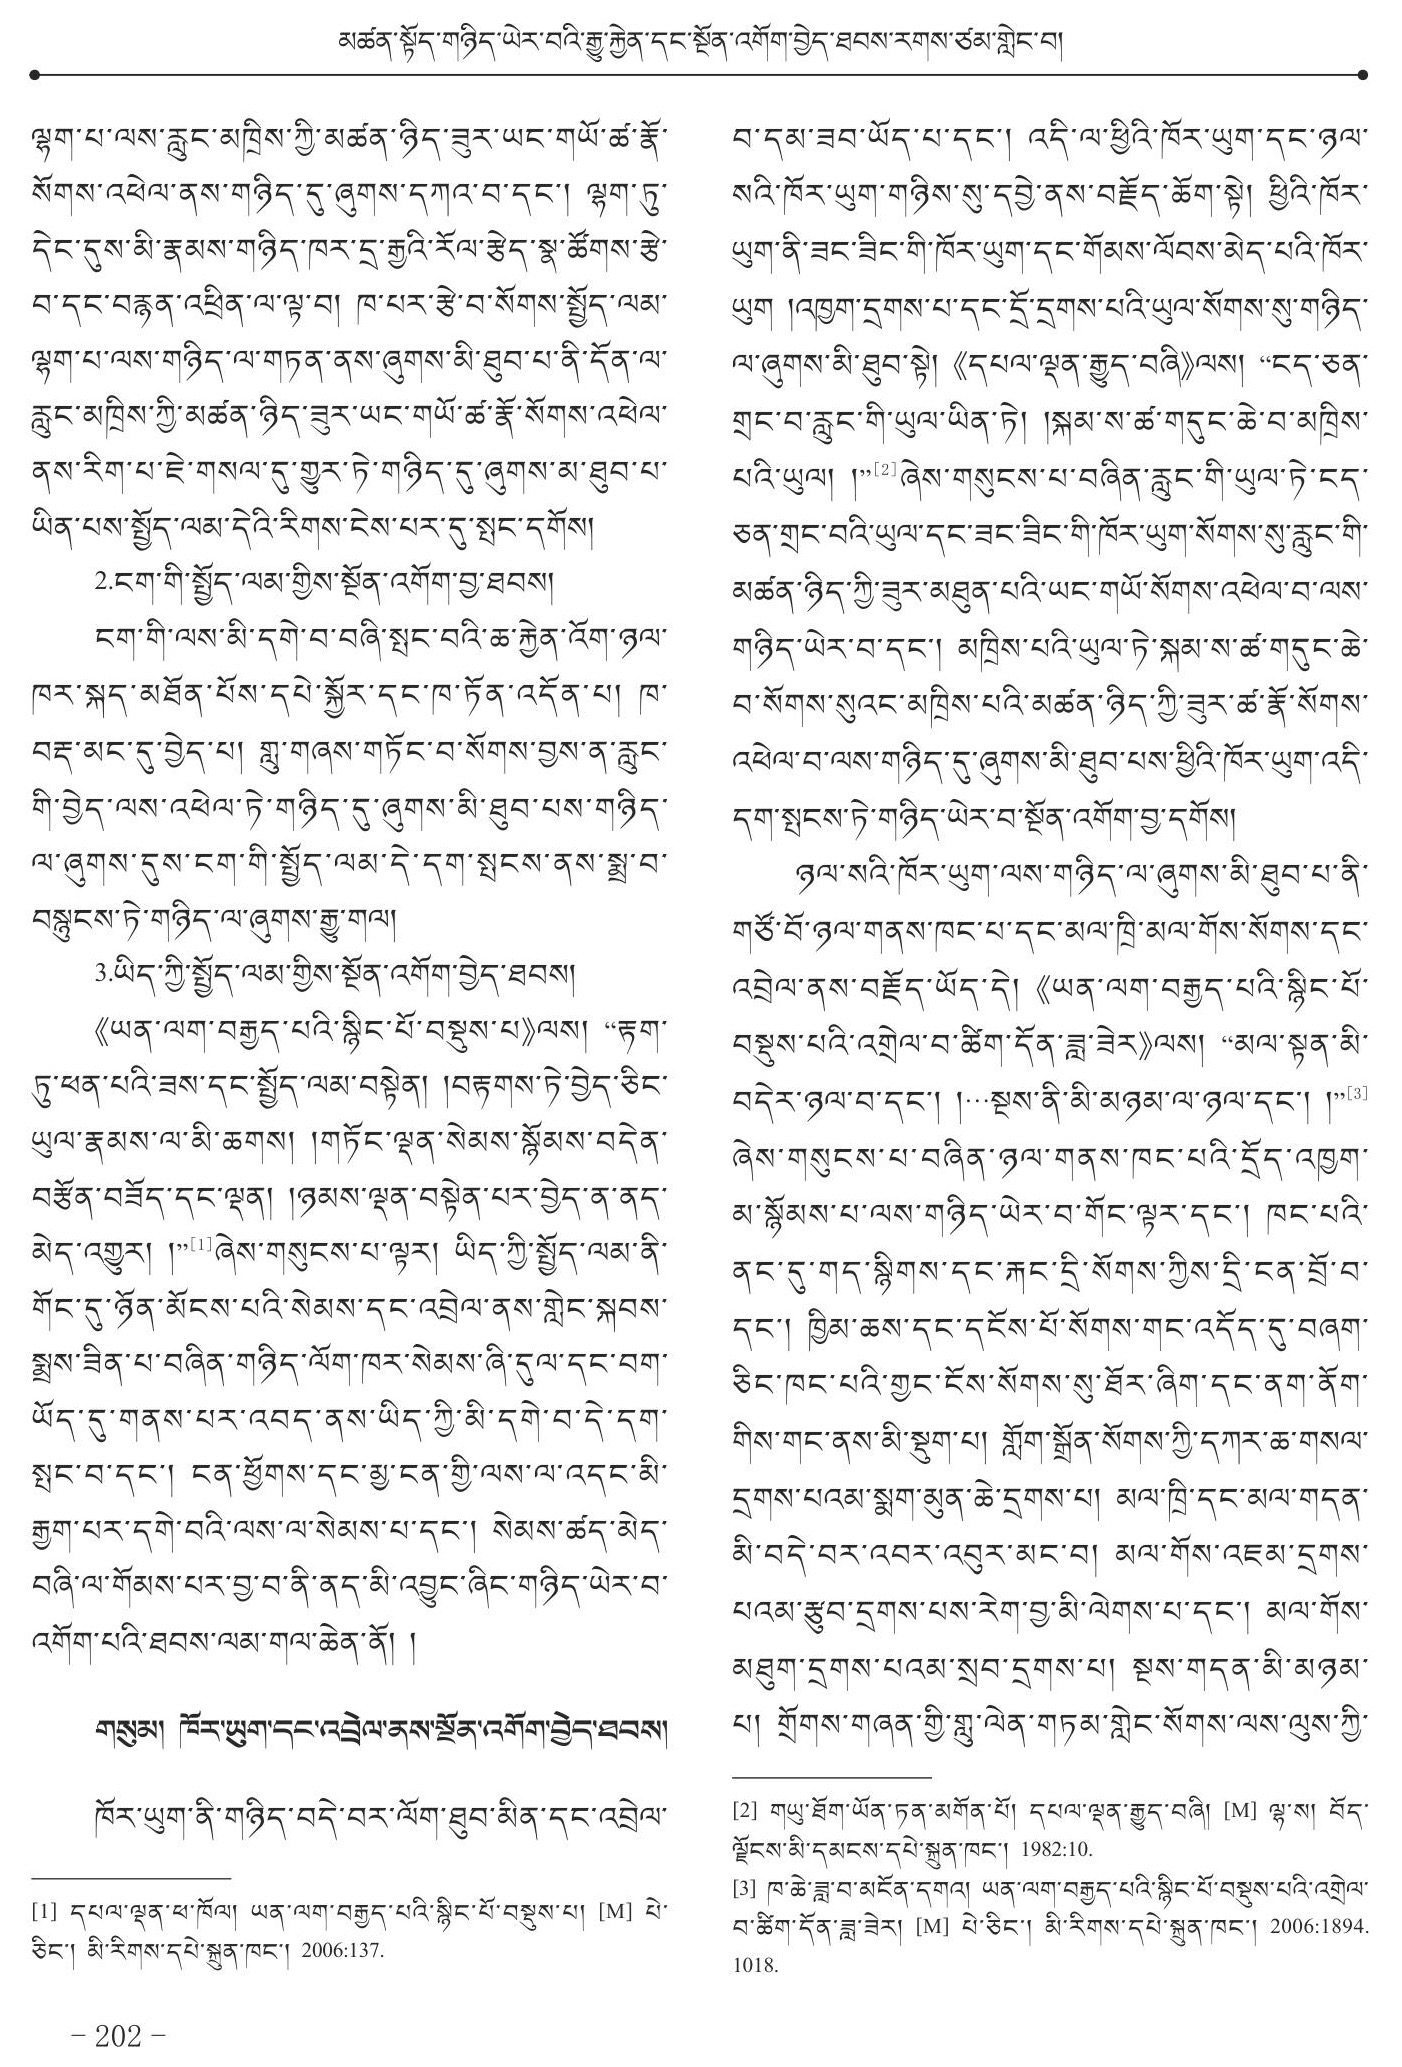 མཚན་སྟོད་གཉིད་ཡེར་བའི་རྒྱུ་རྐྱེན་དང་སྔོན་འགོག་བྱེད་ཐབས་རགས་ཙམ་གླེང་བ།
ལྷག་པ་ལས་རླུང་མཁྲིས་ཀྱི་མཚན་ཉིད་ཟུར་ཡང་གཡོ་ཚ་རྣོ་
སོགས་འཕེལ་ནས་གཉིད་དུ་ཞུགས་དཀའ་བ་དང་། ལྷག་ཏུ་
དེང་དུས་མི་རྣམས་གཉིད་ཁར་དྲ་རྒྱའི་རོལ་རྩེད་སྣ་ཚོགས་རྩེ་
བ་དང་བརྙན་འཕྲིན་ལ་ལྟ་བ། ཁ་པར་རྩེ་བ་སོགས་སྤྱོད་ལམ་
ལྷག་པ་ལས་གཉིད་ལ་གཏན་ནས་ཞུགས་མི་ཐུབ་པ་ནི་དོན་ལ་
རླུང་མཁྲིས་ཀྱི་མཚན་ཉིད་ཟུར་ཡང་གཡོ་ཚ་རྣོ་སོགས་འཕེལ་
ནས་རིག་པ་ཇེ་གསལ་དུ་གྱུར་ཏེ་གཉིད་དུ་ཞུགས་མ་ཐུབ་པ་
ཡིན་པས་སྤྱོད་ལམ་དེའི་རིགས་ངེས་པར་དུ་སྤང་དགོས།
2.ངག་གི་སྤྱོད་ལམ་གྱིས་སྔོན་འགོག་བྱ་ཐབས།
ངག་གི་ལས་མི་དགེ་བ་བཞི་སྤང་བའི་ཆ་རྐྱེན་འོག་ཉལ་
ཁར་སྐད་མཐོན་པོས་དཔེ་སྐྱོར་དང་ཁ་ཏོན་འདོན་པ། ཁ་
བརྡ་མང་དུ་བྱེད་པ། གླུ་གཞས་གཏོང་བ་སོགས་བྱས་ན་རླུང་
གི་བྱེད་ལས་འཕེལ་ཏེ་གཉིད་དུ་ཞུགས་མི་ཐུབ་པས་གཉིད་
ལ་ཞུགས་དུས་ངག་གི་སྤྱོད་ལམ་དེ་དག་སྤངས་ནས་སྨྲ་བ་
བསྲུངས་ཏེ་གཉིད་ལ་ཞུགས་རྒྱུ་གལ།
3.ཡིད་ཀྱི་སྤྱོད་ལམ་གྱིས་སྔོན་འགོག་བྱེད་ཐབས།
《ཡན་ལག་བརྒྱད་པའི་སྙིང་པོ་བསྡུས་པ》ལས། “རྟག་
ཏུ་ཕན་པའི་ཟས་དང་སྤྱོད་ལམ་བསྟེན། །བརྟགས་ཏེ་བྱེད་ཅིང་
ཡུལ་རྣམས་ལ་མི་ཆགས། །གཏོང་ལྡན་སེམས་སྙོམས་བདེན་
བརྩོན་བཟོད་དང་ལྡན། །ཉམས་ལྡན་བསྟེན་པར་བྱེད་ན་ནད་
མེད་འགྱུར། །”[1]ཞེས་གསུངས་པ་ལྟར། ཡིད་ཀྱི་སྤྱོད་ལམ་ནི་
གོང་དུ་ཉོན་མོངས་པའི་སེམས་དང་འབྲེལ་ནས་གླེང་སྐབས་
སྨྲས་ཟིན་པ་བཞིན་གཉིད་ལོག་ཁར་སེམས་ཞི་དུལ་དང་བག་
ཡོད་དུ་གནས་པར་འབད་ནས་ཡིད་ཀྱི་མི་དགེ་བ་དེ་དག་
སྤང་བ་དང་། ངན་ཕྱོགས་དང་མྱ་ངན་གྱི་ལས་ལ་འདང་མི་
རྒྱག་པར་དགེ་བའི་ལས་ལ་སེམས་པ་དང་། སེམས་ཚད་མེད་
བཞི་ལ་གོམས་པར་བྱ་བ་ནི་ནད་མི་འབྱུང་ཞིང་གཉིད་ཡེར་བ་
འགོག་པའི་ཐབས་ལམ་གལ་ཆེན་ནོ། །
གསུམ། ཁོར་ཡུག་དང་འབྲེལ་ནས་སྔོན་འགོག་བྱེད་ཐབས།
ཁོར་ཡུག་ནི་གཉིད་བདེ་བར་ལོག་ཐུབ་མིན་དང་འབྲེལ་
[1] དཔལ་ལྡན་ཕ་ཁོལ། ཡན་ལག་བརྒྱད་པའི་སྙིང་པོ་བསྡུས་པ། [M] པེ་
ཅིང་། མི་རིགས་དཔེ་སྐྲུན་ཁང་། 2006:137.
བ་དམ་ཟབ་ཡོད་པ་དང་། འདི་ལ་ཕྱིའི་ཁོར་ཡུག་དང་ཉལ་
སའི་ཁོར་ཡུག་གཉིས་སུ་དབྱེ་ནས་བརྗོད་ཆོག་སྟེ། ཕྱིའི་ཁོར་
ཡུག་ནི་ཟང་ཟིང་གི་ཁོར་ཡུག་དང་གོམས་ལོབས་མེད་པའི་ཁོར་
ཡུག །འཁྱག་དྲགས་པ་དང་དྲོ་དྲགས་པའི་ཡུལ་སོགས་སུ་གཉིད་
ལ་ཞུགས་མི་ཐུབ་སྟེ། 《དཔལ་ལྡན་རྒྱུད་བཞི》ལས། “ངད་ཅན་
གྲང་བ་རླུང་གི་ཡུལ་ཡིན་ཏེ། །སྐམ་ས་ཚ་གདུང་ཆེ་བ་མཁྲིས་
པའི་ཡུལ། །”[2]ཞེས་གསུངས་པ་བཞིན་རླུང་གི་ཡུལ་ཏེ་ངད་
ཅན་གྲང་བའི་ཡུལ་དང་ཟང་ཟིང་གི་ཁོར་ཡུག་སོགས་སུ་རླུང་གི་
མཚན་ཉིད་ཀྱི་ཟུར་མཐུན་པའི་ཡང་གཡོ་སོགས་འཕེལ་བ་ལས་
གཉིད་ཡེར་བ་དང་། མཁྲིས་པའི་ཡུལ་ཏེ་སྐམ་ས་ཚ་གདུང་ཆེ་
བ་སོགས་སུའང་མཁྲིས་པའི་མཚན་ཉིད་ཀྱི་ཟུར་ཚ་རྣོ་སོགས་
འཕེལ་བ་ལས་གཉིད་དུ་ཞུགས་མི་ཐུབ་པས་ཕྱིའི་ཁོར་ཡུག་འདི་
དག་སྤངས་ཏེ་གཉིད་ཡེར་བ་སྔོན་འགོག་བྱ་དགོས།
ཉལ་སའི་ཁོར་ཡུག་ལས་གཉིད་ལ་ཞུགས་མི་ཐུབ་པ་ནི་
གཙོ་བོ་ཉལ་གནས་ཁང་པ་དང་མལ་ཁྲི་མལ་གོས་སོགས་དང་
འབྲེལ་ནས་བརྗོད་ཡོད་དེ། 《ཡན་ལག་བརྒྱད་པའི་སྙིང་པོ་
བསྡུས་པའི་འགྲེལ་བ་ཚིག་དོན་ཟླ་ཟེར》ལས། “མལ་སྟན་མི་
བདེར་ཉལ་བ་དང་། །…སྔས་ནི་མི་མཉམ་ལ་ཉལ་དང་། །”[3]
ཞེས་གསུངས་པ་བཞིན་ཉལ་གནས་ཁང་པའི་དྲོད་འཁྱག་
མ་སྙོམས་པ་ལས་གཉིད་ཡེར་བ་གོང་ལྟར་དང་། ཁང་པའི་
ནང་དུ་གད་སྙིགས་དང་རྐང་དྲི་སོགས་ཀྱིས་དྲི་ངན་བྲོ་བ་
དང་། ཁྱིམ་ཆས་དང་དངོས་པོ་སོགས་གང་འདོད་དུ་བཞག་
ཅིང་ཁང་པའི་གྱང་ངོས་སོགས་སུ་ཐོར་ཞིག་དང་ནག་ནོག་
གིས་གང་ནས་མི་སྡུག་པ། གློག་སྒྲོན་སོགས་ཀྱི་དཀར་ཆ་གསལ་
དྲགས་པའམ་སྨག་མུན་ཆེ་དྲགས་པ། མལ་ཁྲི་དང་མལ་གདན་
མི་བདེ་བར་འབར་འབུར་མང་བ། མལ་གོས་འཇམ་དྲགས་
པའམ་རྩུབ་དྲགས་པས་རེག་བྱ་མི་ལེགས་པ་དང་། མལ་གོས་
མཐུག་དྲགས་པའམ་སྲབ་དྲགས་པ། སྔས་གདན་མི་མཉམ་
པ། གྲོགས་གཞན་གྱི་གླུ་ལེན་གཏམ་གླེང་སོགས་ལས་ལུས་ཀྱི་
[2] གཡུ་ཐོག་ཡོན་ཏན་མགོན་པོ། དཔལ་ལྡན་རྒྱུད་བཞི། [M] ལྷ་ས། བོད་
ལྗོངས་མི་དམངས་དཔེ་སྐྲུན་ཁང་། 1982:10.
[3] ཁ་ཆེ་ཟླ་བ་མངོན་དགའ། ཡན་ལག་བརྒྱད་པའི་སྙིང་པོ་བསྡུས་པའི་འགྲེལ་
བ་ཚིག་དོན་ཟླ་ཟེར། [M] པེ་ཅིང་། མི་རིགས་དཔེ་སྐྲུན་ཁང་། 2006:1894.
1018.
– 202 –